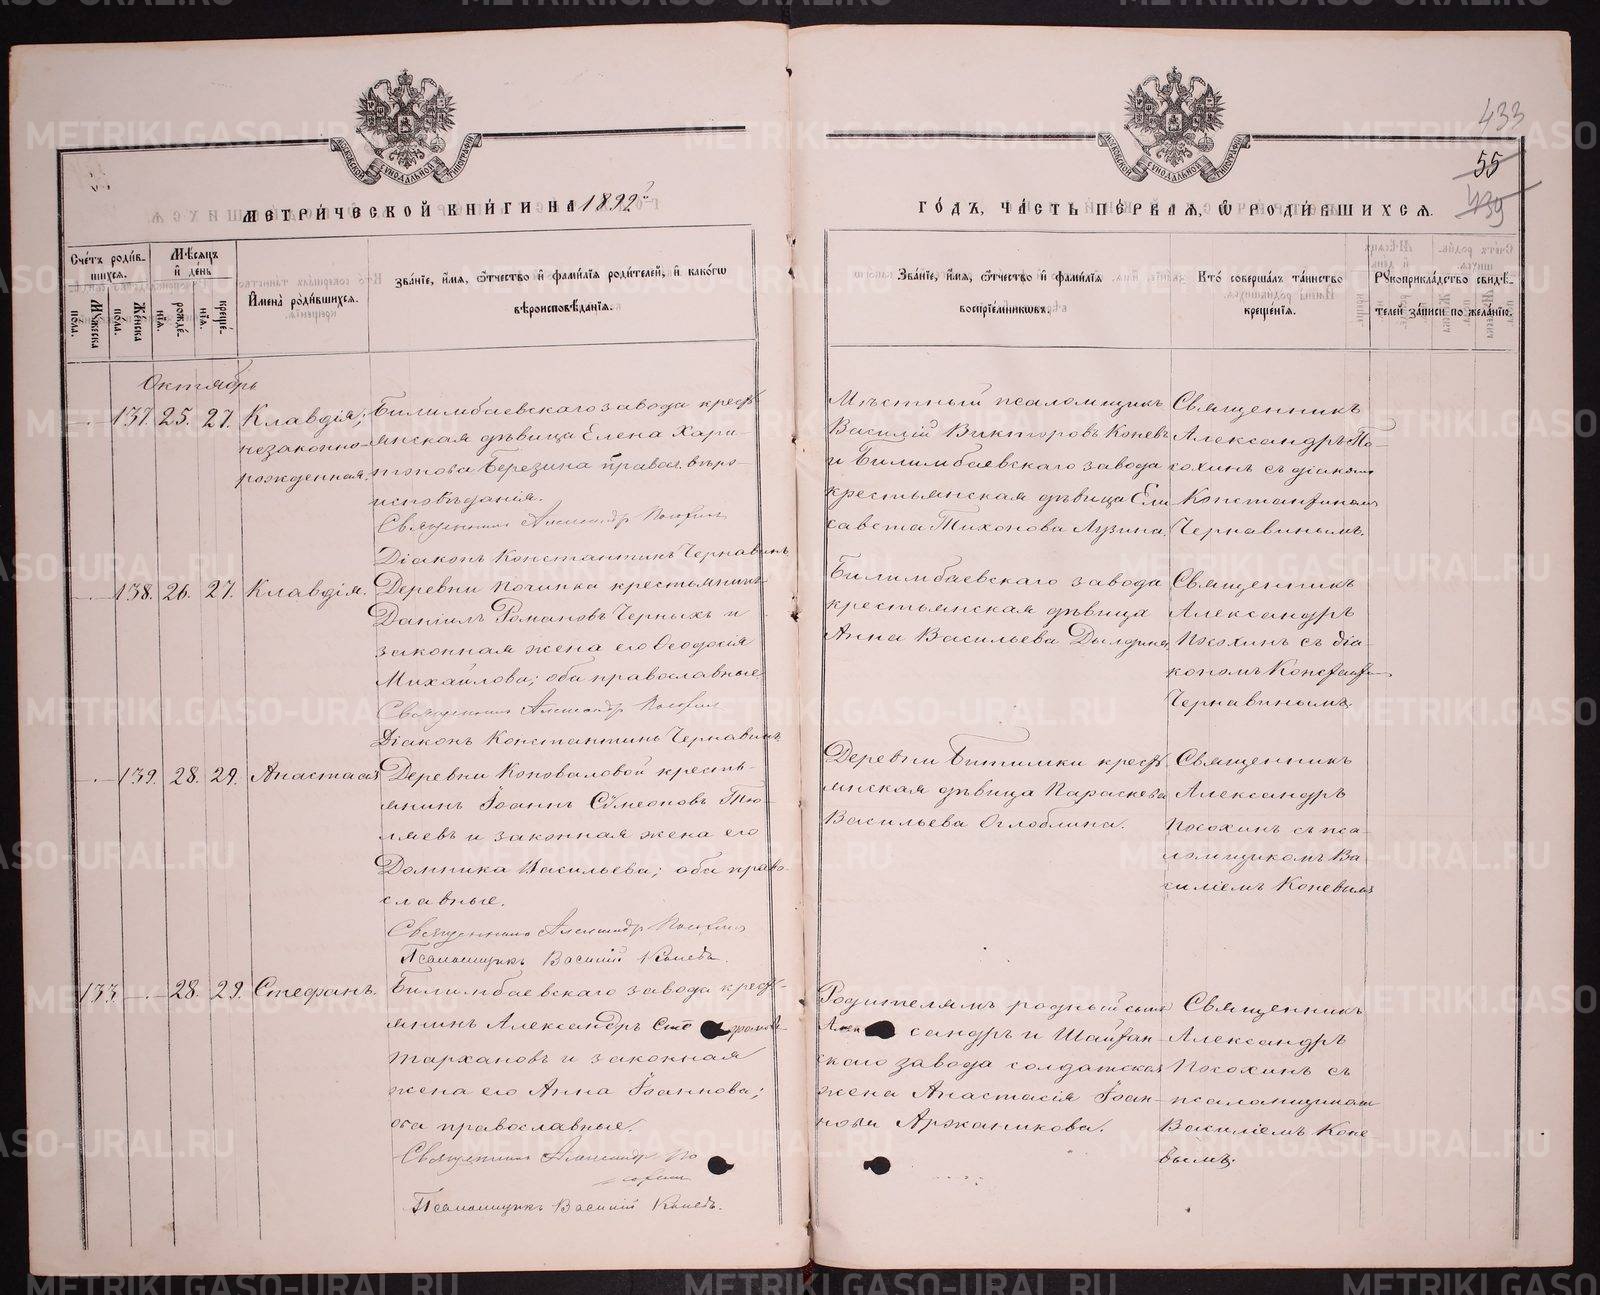 433
55
439
МЕТРИЧЕСКОЙ КНИГИ НА 1892й
ГОДЪ, ЧАСТЬ ПЕРВАЯ, Ѿ РОДИВШИХСЯ.
Счетъ родившихся.
Мужеска пола.
Женска пола.
Мѣсяцъ и день
рожденія.
крещенія.
Имена родившихся.
Званіе, имя, ѿтчество и фамилія родителей, и какогѡ
вѣроисповѣданія.
Званіе, имя, ѿтчество и фамилія
воспріемникѡвъ.
Кто совершалъ таинство
крещенія.
Рукоприкладство свидѣ-
телей записи по желанію.
Октябрь
137. 25. 27. Клавдія,
незаконно-
рожденная.
Билимбаевскаго завода крест
янская дѣвица Елена Хари-
тонова Березина правос. вѣро-
исповѣданія.
Священникъ Александръ Посохинъ
Діаконъ Константинъ Чернавинъ
Мѣстный псаломщикъ
Василій Викторовъ Коневъ
и Билимбаевскаго завода
крестьянская дѣвица Ели
савета Тихонова Лузина.
Священникъ
Александръ По-
сохинъ съ діакономъ
Константиномъ
Чернавинымъ.
138. 26. 27. Клавдія.
Деревни Починка крестьянинъ
Даніилъ Романовъ Черныхъ и
законная жена его Ѳеодосія
Михайлова; оба православные.
Священникъ Александръ Посохинъ
Діаконъ Константинъ Чернавинъ
Билимбаевскаго завода
крестьянская дѣвица
Анна Васильева Дылдина
Священникъ
Александръ
Посохинъ съ діа-
кономъ Констант
Чернавинымъ.
139. 28. 29. Анастасія
Деревни Коноваловой кресть-
янинъ Іоаннъ Сѵмеоновъ Тю-
ляевъ и законная жена его
Домника Васильева; оба право-
славные.
Священникъ Александръ Посохинъ
Псаломщикъ Василій Коневъ.
Деревни Битимки крест
янская дѣвица Параскева
Васильева Оглоблина.
Священникъ
Александръ
Посохинъ съ пса-
ломщикомъ Ва-
силіемъ Коневымъ
133 28. 29. Стефанъ.
Билимбаевскаго завода крест-
янинъ Александръ
Тархановъ и законная
жена его Анна Іоаннова;
оба православные.
Священникъ Александръ По
сохинъ
Псаломщикъ Василій Коневъ.
Родителямъ родный сынъ
Алек сандръ и Шайтан
скаго завода солдатская
жена Анастасія Іоан-
нова Аржаникова.
Священникъ
Александръ
Посохинъ съ
псаломщикомъ
Василіемъ Коне
вымъ.
METRIKI.GASO-URAL.RU